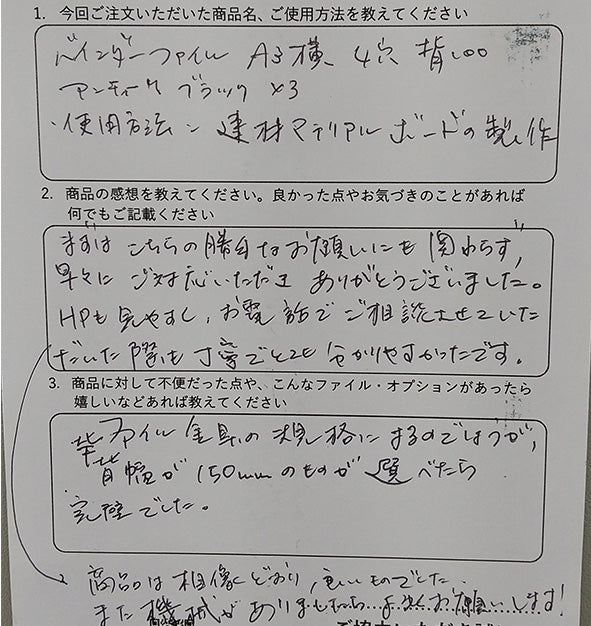 1. 今回ご注文いただいた商品名、ご使用方法を教えてください
バインダーファイル A3横 4穴 背100
アンティーク ブラック ×3
・使用方法 : 建材マテリアルボードの製作
2. 商品の感想を教えてください。良かった点やお気づきのことがあれば
何でもご記載ください
まずは こちらの勝手なお願いにも関わらず、
早々に ご対応いただき ありがとうございました。
HPも見やすく、お電話でご相談させていた
だいた際も丁寧でとても分かりやすかったです。
3. 商品に対して不便だった点や、こんなファイル・オプションがあったら
嬉しいなどあれば教えてください
ファイル金具の規格にするのでしょうが、
背幅が150mmのものが選べたら
完璧でした。
商品は想像どおり、良いものでした。
また機会がありましたら…よろしくお願いします!